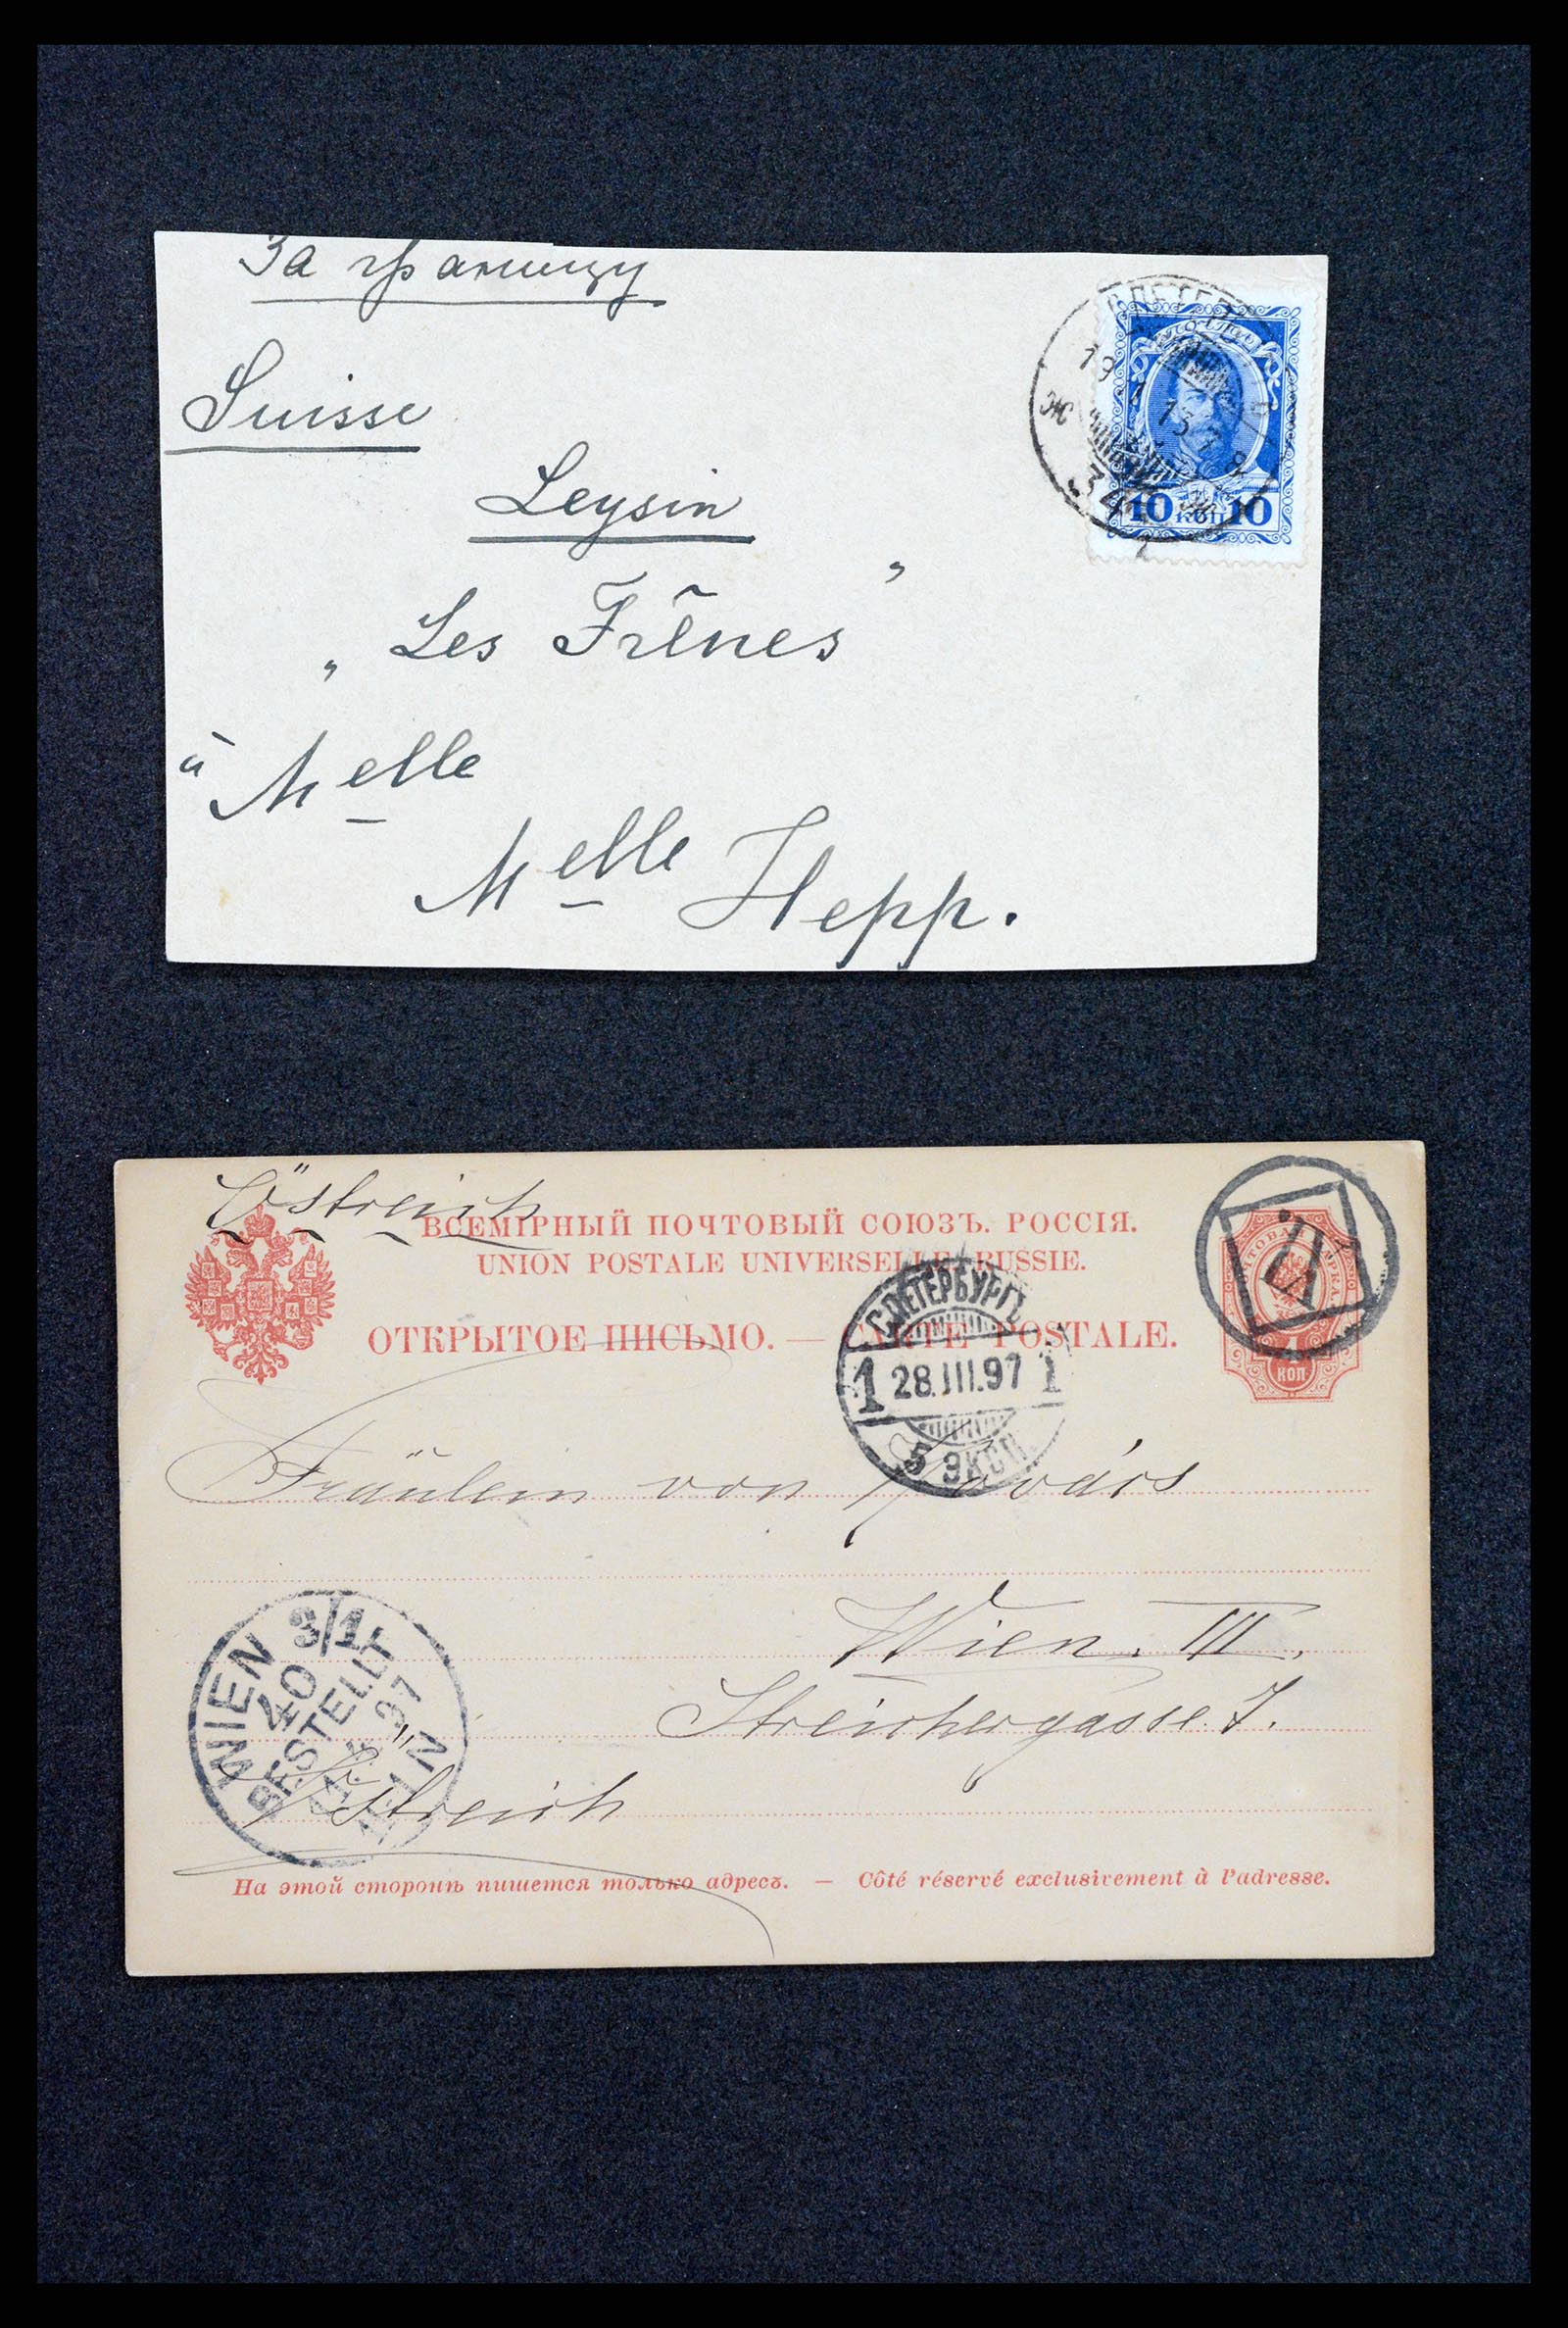 За границу
Suisse
Leysin
„Les Frênes”
à Melle
Melle Hepp.
С.ПЕТЕРБ
19 1 13 7 8
34
10 КОП 10
Östreich
ВСЕМІРНЫЙ ПОЧТОВЫЙ СОЮЗЪ. РОССІЯ.
UNION POSTALE UNIVERSELLE. RUSSIE.
ОТКРЫТОЕ ПИСЬМО. — CARTE POSTALE.
ПОЧТОВАЯ МАРКА.
4 КОП
VII.
С.ПЕТЕРБУРГЪ
1 28.III.97 1
5 ЭКСП.
Fräulein von Kovács
Wien. III.
Streichergasse 7.
Östreich
WIEN 3/1
40
BESTELLT
97
На этой сторонѣ пишется только адресъ. — Côté réservé exclusivement à l'adresse.